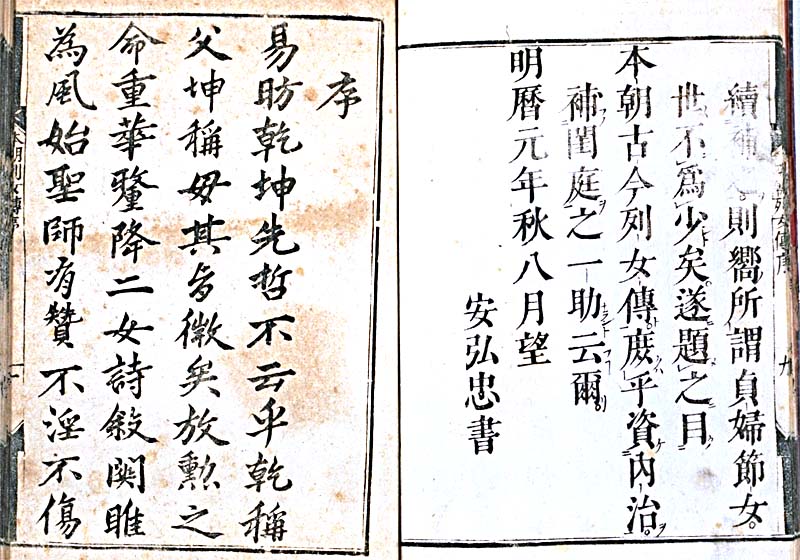 本朝列女傳序 九
續補則嚮所謂貞婦節女。
世不爲少矣。遂題之目
本朝古今列女傳庶乎資內治
補閨庭之一助云爾
明曆元年秋八月望
安弘忠書
序
易昉乾坤先哲不云乎乾稱
父坤稱母其旨微矣放勲之
命重華釐降二女詩敘関雎
為風始聖師有贊不淫不傷
本朝列女傳序 一